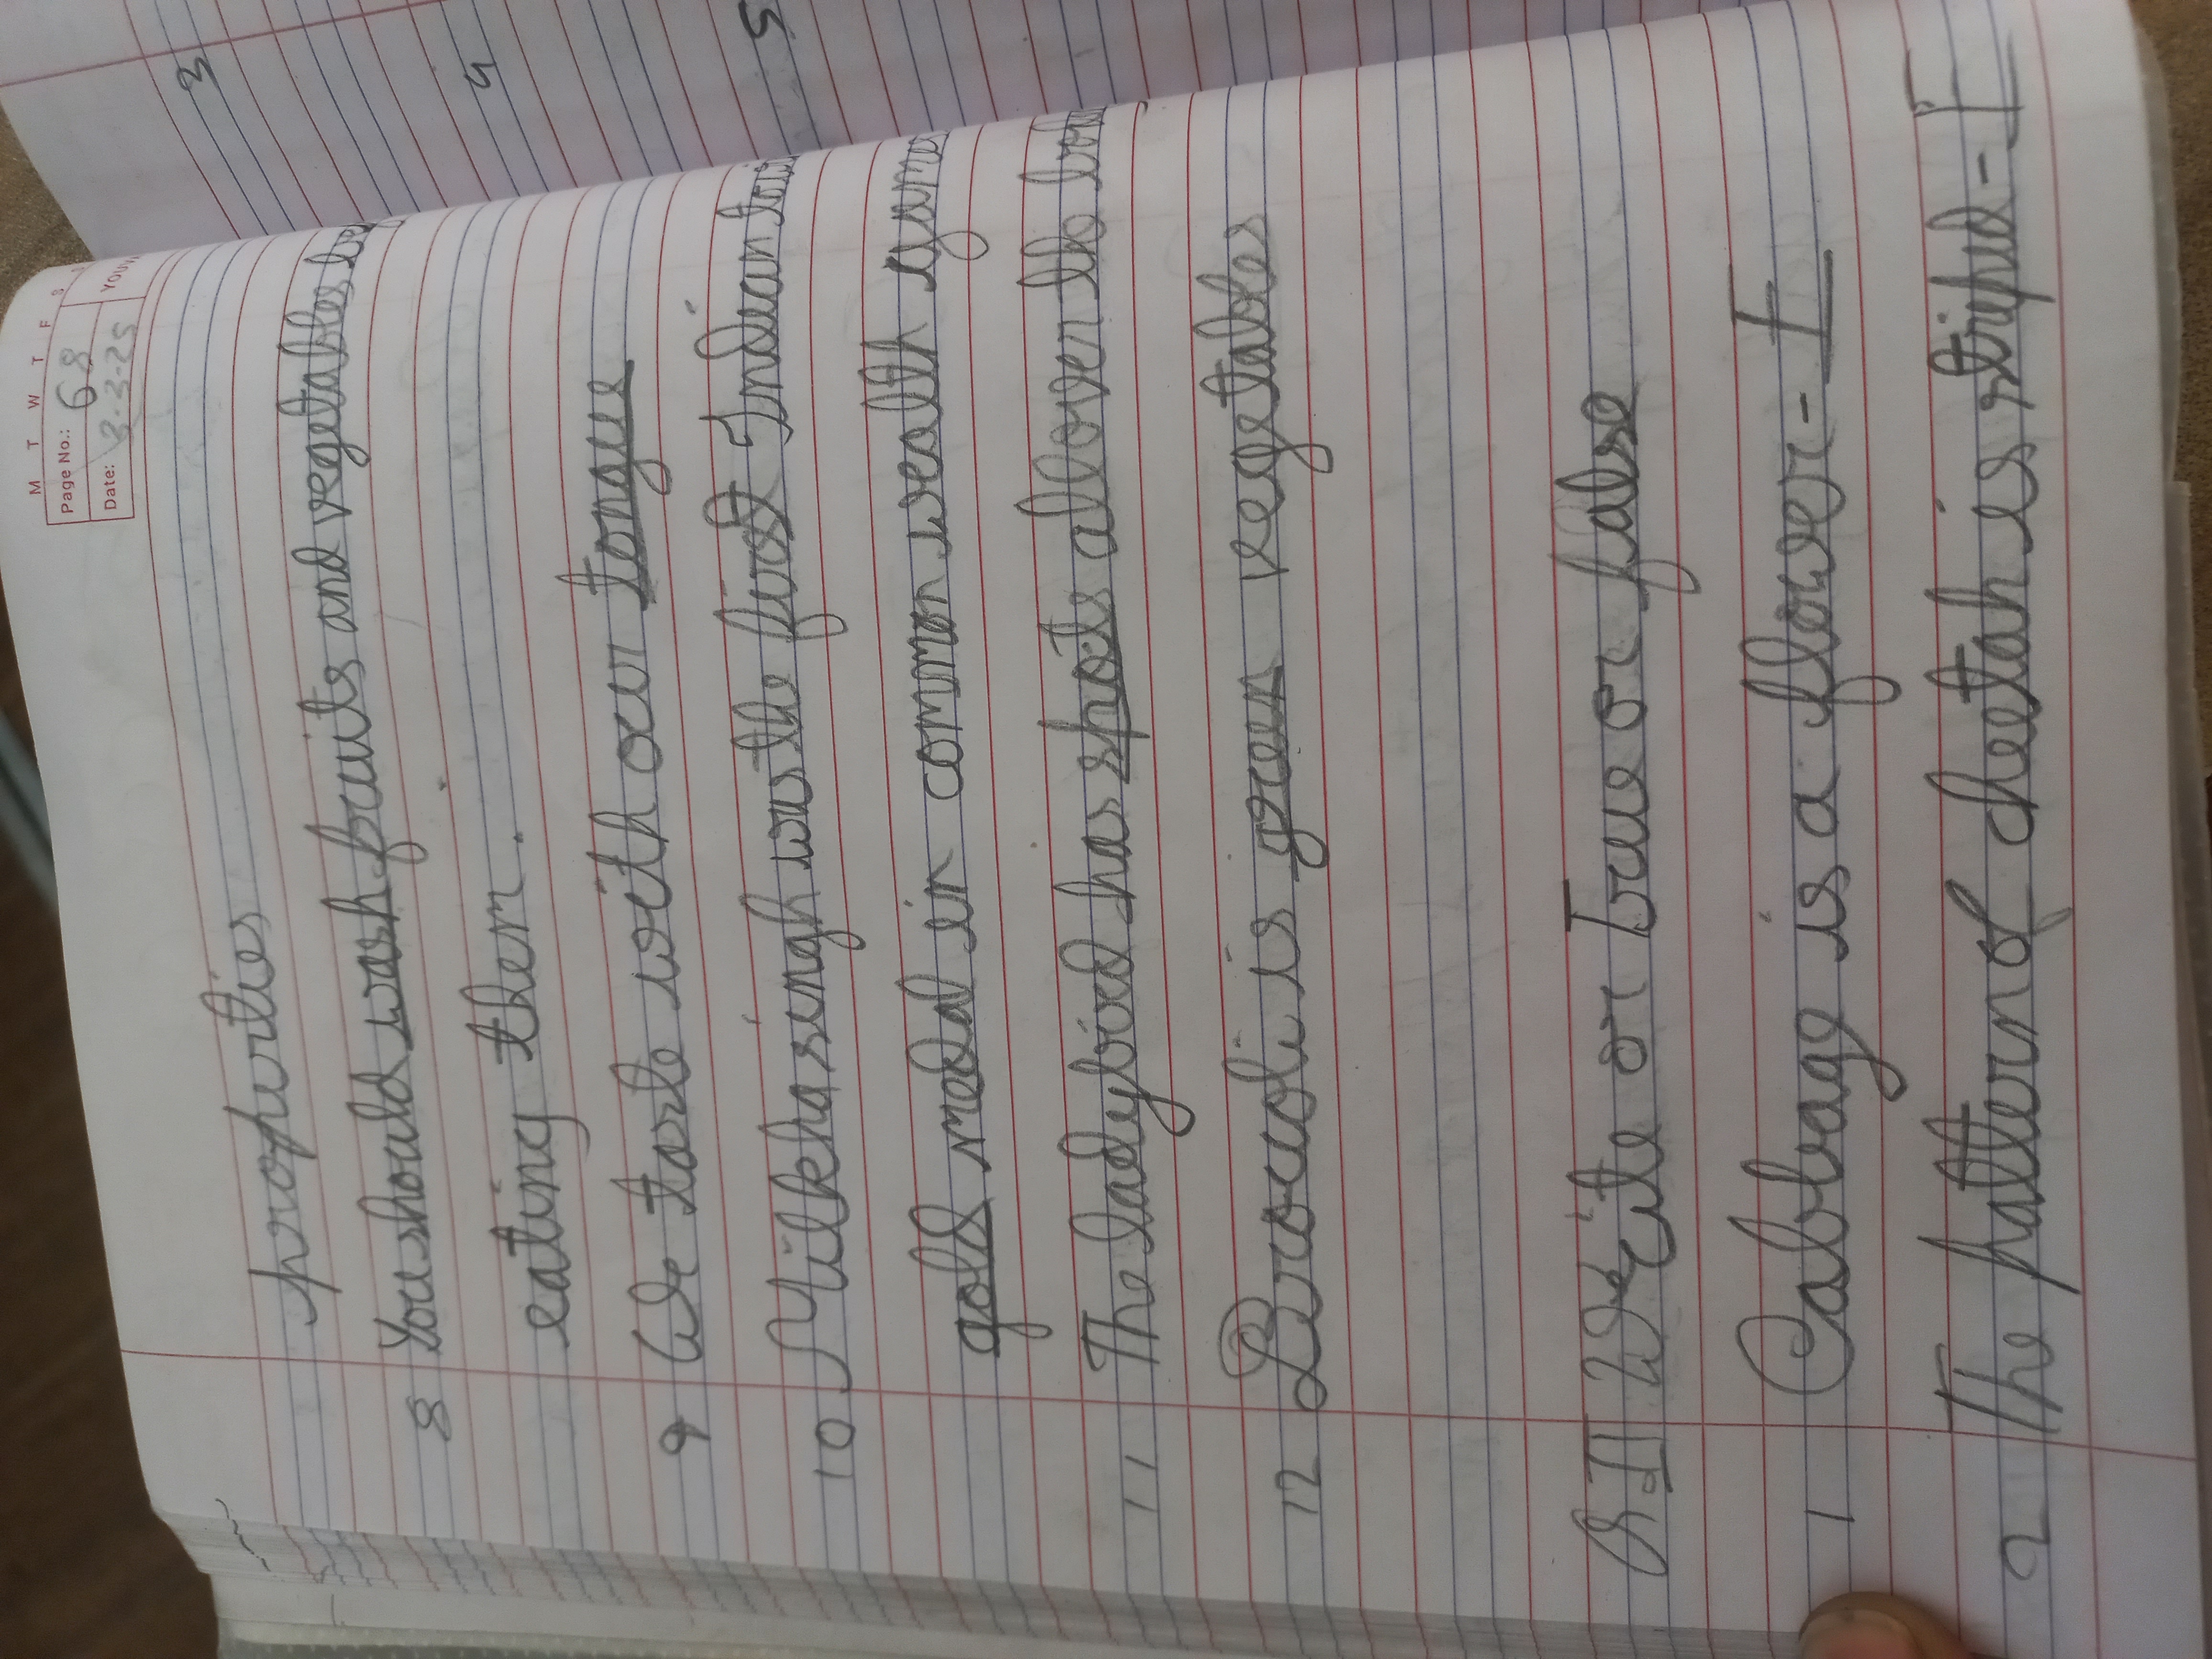 M T W T F S
Page No.: 68
Date: 3-3-25
YOUVA
properties
8 You should wash fruits and vegetables
eating them.
9 We taste with our tongue
10 Milkha singh was the first Indian to
gold medal in common wealth games
11 The ladybird has spots all over the
12 Brocoli is green vegetables
Q.II Write or True or false
1 Cabbage is a flower - F
2 The pattern of cheetah is striped - F
3
4
5